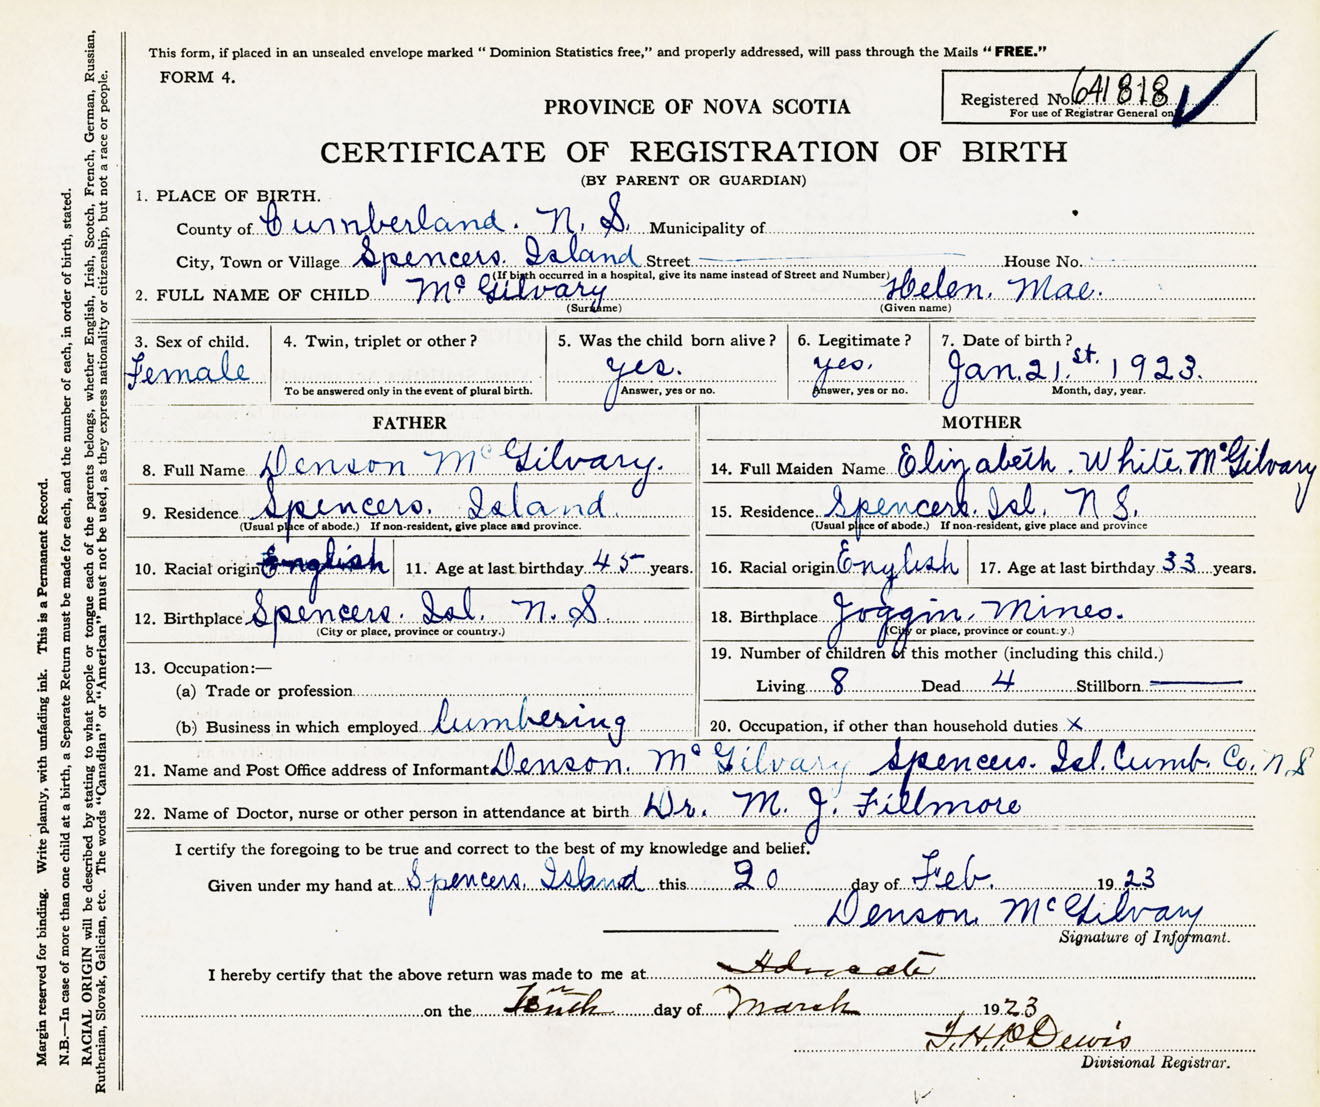 This form, if placed in an unsealed envelope marked "Dominion Statistics free," and properly addressed, will pass through the Mails "FREE."
FORM 4.
Registered No. 641818
For use of Registrar General on
PROVINCE OF NOVA SCOTIA
CERTIFICATE OF REGISTRATION OF BIRTH
(BY PARENT OR GUARDIAN)
1. PLACE OF BIRTH.
County of Cumberland. N. S. Municipality of
City, Town or Village Spencers. Island Street House No.
(If birth occurred in a hospital, give its name instead of Street and Number)
2. FULL NAME OF CHILD McGilvary Helen. Mae.
(Surname) (Given name)
3. Sex of child. 4. Twin, triplet or other? 5. Was the child born alive? 6. Legitimate? 7. Date of birth?
Female yes. yes. Jan. 21.st. 1923.
To be answered only in the event of plural birth. Answer, yes or no. Answer, yes or no. Month, day, year.
FATHER
8. Full Name Denson McGilvary.
9. Residence Spencers. Island.
(Usual place of abode.) If non-resident, give place and province.
10. Racial origin English 11. Age at last birthday 45 years.
12. Birthplace Spencers. Isl. N. S.
(City or place, province or country.)
13. Occupation:—
(a) Trade or profession
(b) Business in which employed lumbering
MOTHER
14. Full Maiden Name Elizabeth. White. McGilvary
15. Residence Spencers. Isl. N S.
(Usual place of abode.) If non-resident, give place and province
16. Racial origin English 17. Age at last birthday 33 years.
18. Birthplace Joggin. Mines.
(City or place, province or country.)
19. Number of children of this mother (including this child.)
Living 8 Dead 4 Stillborn
20. Occupation, if other than household duties x
21. Name and Post Office address of Informant Denson. McGilvary Spencers. Isl. Cumb. Co. N. S
22. Name of Doctor, nurse or other person in attendance at birth Dr. M. J. Fillmore
I certify the foregoing to be true and correct to the best of my knowledge and belief.
Given under my hand at Spencers. Island this 20 day of Feb. 1923
Denson. McGilvary
Signature of Informant.
I hereby certify that the above return was made to me at Advocate
on the Tenth day of March 1923
Dewis
Divisional Registrar.
Margin reserved for binding. Write plainly, with unfading ink. This is a Permanent Record.
N.B.—In case of more than one child at a birth, a Separate Return must be made for each, and the number of each, in order of birth, stated.
RACIAL ORIGIN will be described by stating to what people or tongue each of the parents belongs, whether English, Irish, Scotch, French, German, Russian,
Ruthenian, Slovak, Galician, etc. The words "Canadian" or "American" must not be used, as they express nationality or citizenship, but not a race or people.